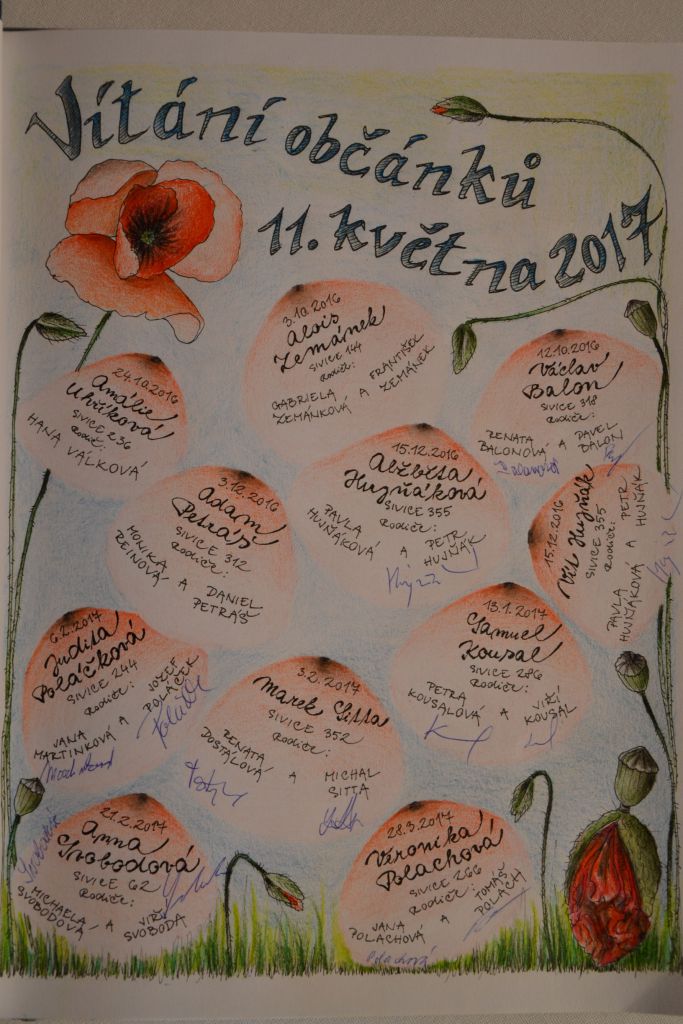 Vítání občánků
11. května 2017
3.10.2016
Alois
Zemánek
SIVICE 144
Rodiče:
GABRIELA ZEMÁNKOVÁ A FRANTIŠEK ZEMÁNEK
12.10.2016
Václav
Balon
SIVICE 318
Rodiče:
RENATA BALONOVÁ A PAVEL BALON
24.10.2016
Amálie
Uhříková
SIVICE 236
Rodiče:
HANA VÁLKOVÁ
15.12.2016
Alžběta
Hujňáková
SIVICE 355
Rodiče:
PAVLA HUJŇÁKOVÁ A PETR HUJŇÁK
3.12.2016
Adam
Petráš
SIVICE 312
Rodiče:
MONIKA REINOVÁ A DANIEL PETRÁŠ
15.12.2016
Vít Hujňák
SIVICE 355
Rodiče:
PAVLA HUJŇÁKOVÁ A PETR HUJŇÁK
13.1.2017
Samuel
Kousal
SIVICE 286
Rodiče:
PETRA KOUSALOVÁ A JIŘÍ KOUSAL
6.2.2017
Judita
Poláčková
SIVICE 244
Rodiče:
JANA MARTINKOVÁ A JOZEF POLÁČEK
3.2.2017
Marek Sitta
SIVICE 352
Rodiče:
RENATA DOSTÁLOVÁ A MICHAL SITTA
21.2.2017
Anna
Svobodová
SIVICE 62
Rodiče:
MICHAELA SVOBODOVÁ A JIŘÍ SVOBODA
28.3.2017
Veronika
Polachová
SIVICE 266
Rodiče:
JANA POLACHOVÁ A TOMÁŠ POLACH
Polachová